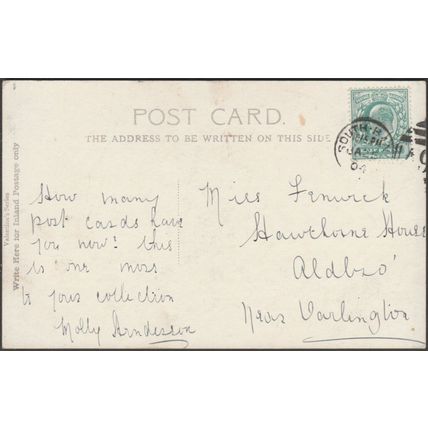 POST CARD.
THE ADDRESS TO BE WRITTEN ON THIS SIDE
Valentine's Series
Write Here for Inland Postage only
How many
post cards have
you now? this
is one more
to your collection
Molly
Miss Fenwick
Hawthorne House
Aldbro'
Near Darlington
SOUTH
JA
04